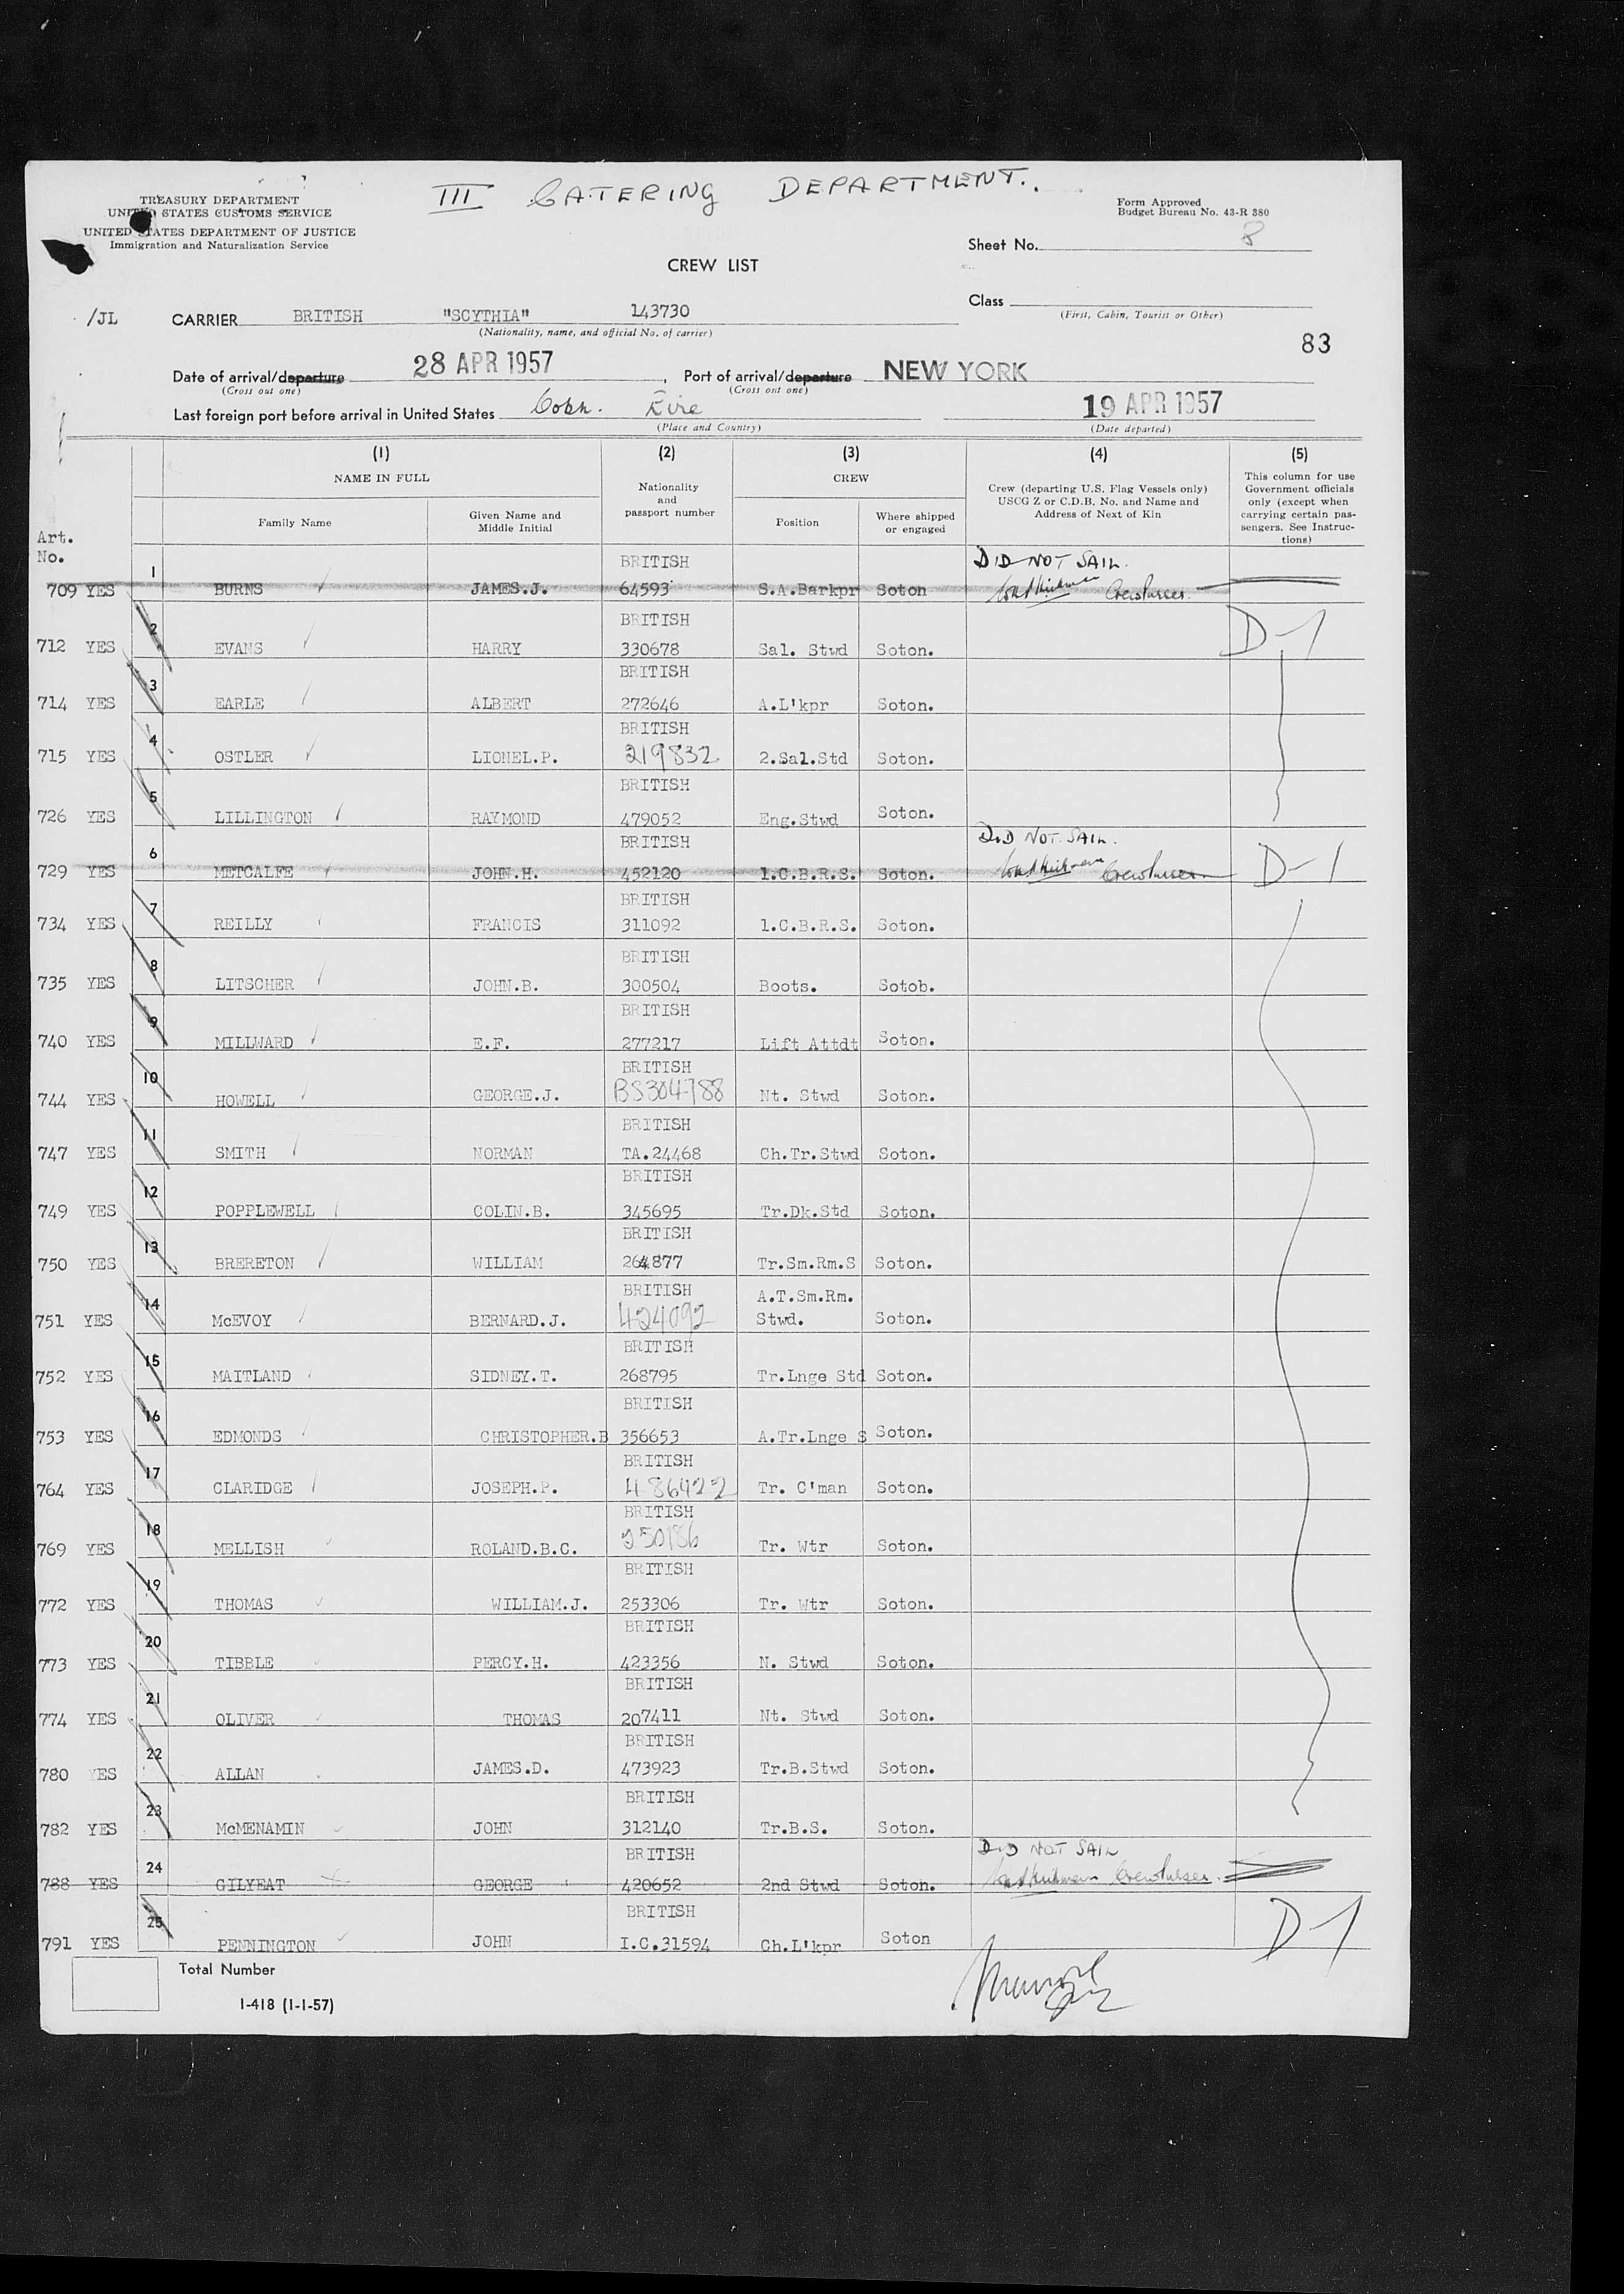 III CATERING DEPARTMENT.
TREASURY DEPARTMENT
UNITED STATES CUSTOMS SERVICE
UNITED STATES DEPARTMENT OF JUSTICE
Immigration and Naturalization Service
Form Approved
Budget Bureau No. 43-R 380
Sheet No. 8
CREW LIST
Class
(First, Cabin, Tourist or Other)
/JL CARRIER BRITISH "SCYTHIA" 143730
(Nationality, name, and official No. of carrier)
83
Date of arrival/departure 28 APR 1957, Port of arrival/departure NEW YORK
(Cross out one) (Cross out one)
Last foreign port before arrival in United States Cobh. Eire 19 APR 1957
(Place and Country) (Date departed)
(1) (2) (3) (4) (5)
NAME IN FULL
Nationality and passport number
CREW
Crew (departing U.S. Flag Vessels only) USCG Z or C.D.B. No. and Name and Address of Next of Kin
This column for use Government officials only (except when carrying certain passengers. See Instructions)
Family Name Given Name and Middle Initial Position Where shipped or engaged
Art. No.
1 BRITISH DID NOT SAIL.
709 YES BURNS JAMES.J. 64593 S.A.Barkpr Soton Crew Purser.
2 BRITISH D-1
712 YES EVANS HARRY 330678 Sal. Stwd Soton.
3 BRITISH
714 YES EARLE ALBERT 272646 A.L'kpr Soton.
4 BRITISH
715 YES OSTLER LIONEL.P. 219832 2.Sal.Std Soton.
5 BRITISH
726 YES LILLINGTON RAYMOND 479052 Eng.Stwd Soton.
6 BRITISH DID NOT SAIL.
729 YES METCALFE JOHN.H. 452120 1.C.B.R.S. Soton. Crew Purser D-1
7 BRITISH
734 YES REILLY FRANCIS 311092 1.C.B.R.S. Soton.
8 BRITISH
735 YES LITSCHER JOHN.B. 300504 Boots. Sotob.
9 BRITISH
740 YES MILLWARD E.F. 277217 Lift Attdt Soton.
10 BRITISH
744 YES HOWELL GEORGE.J. BS304788 Nt. Stwd Soton.
11 BRITISH
747 YES SMITH NORMAN TA.24468 Ch.Tr.Stwd Soton.
12 BRITISH
749 YES POPPLEWELL COLIN.B. 345695 Tr.Dk.Std Soton.
13 BRITISH
750 YES BRERETON WILLIAM 264877 Tr.Sm.Rm.S Soton.
14 BRITISH A.T.Sm.Rm.
751 YES McEVOY BERNARD.J. 424092 Stwd. Soton.
15 BRITISH
752 YES MAITLAND SIDNEY.T. 268795 Tr.Lnge Std Soton.
16 BRITISH
753 YES EDMONDS CHRISTOPHER.B 356653 A.Tr.Lnge S Soton.
17 BRITISH
764 YES CLARIDGE JOSEPH.P. 486422 Tr. C'man Soton.
18 BRITISH
769 YES MELLISH ROLAND.B.C. 250186 Tr. Wtr Soton.
19 BRITISH
772 YES THOMAS WILLIAM.J. 253306 Tr. Wtr Soton.
20 BRITISH
773 YES TIBBLE PERCY.H. 423356 N. Stwd Soton.
21 BRITISH
774 YES OLIVER THOMAS 207411 Nt. Stwd Soton.
22 BRITISH
780 YES ALLAN JAMES.D. 473923 Tr.B.Stwd Soton.
23 BRITISH
782 YES McMENAMIN JOHN 312140 Tr.B.S. Soton.
24 BRITISH DID NOT SAIL
788 YES GILYEAT GEORGE 420652 2nd Stwd Soton. Crew Purser.
25 BRITISH D-1
791 YES PENNINGTON JOHN I.C.31594 Ch.L'kpr Soton
Total Number
I-418 (1-1-57)